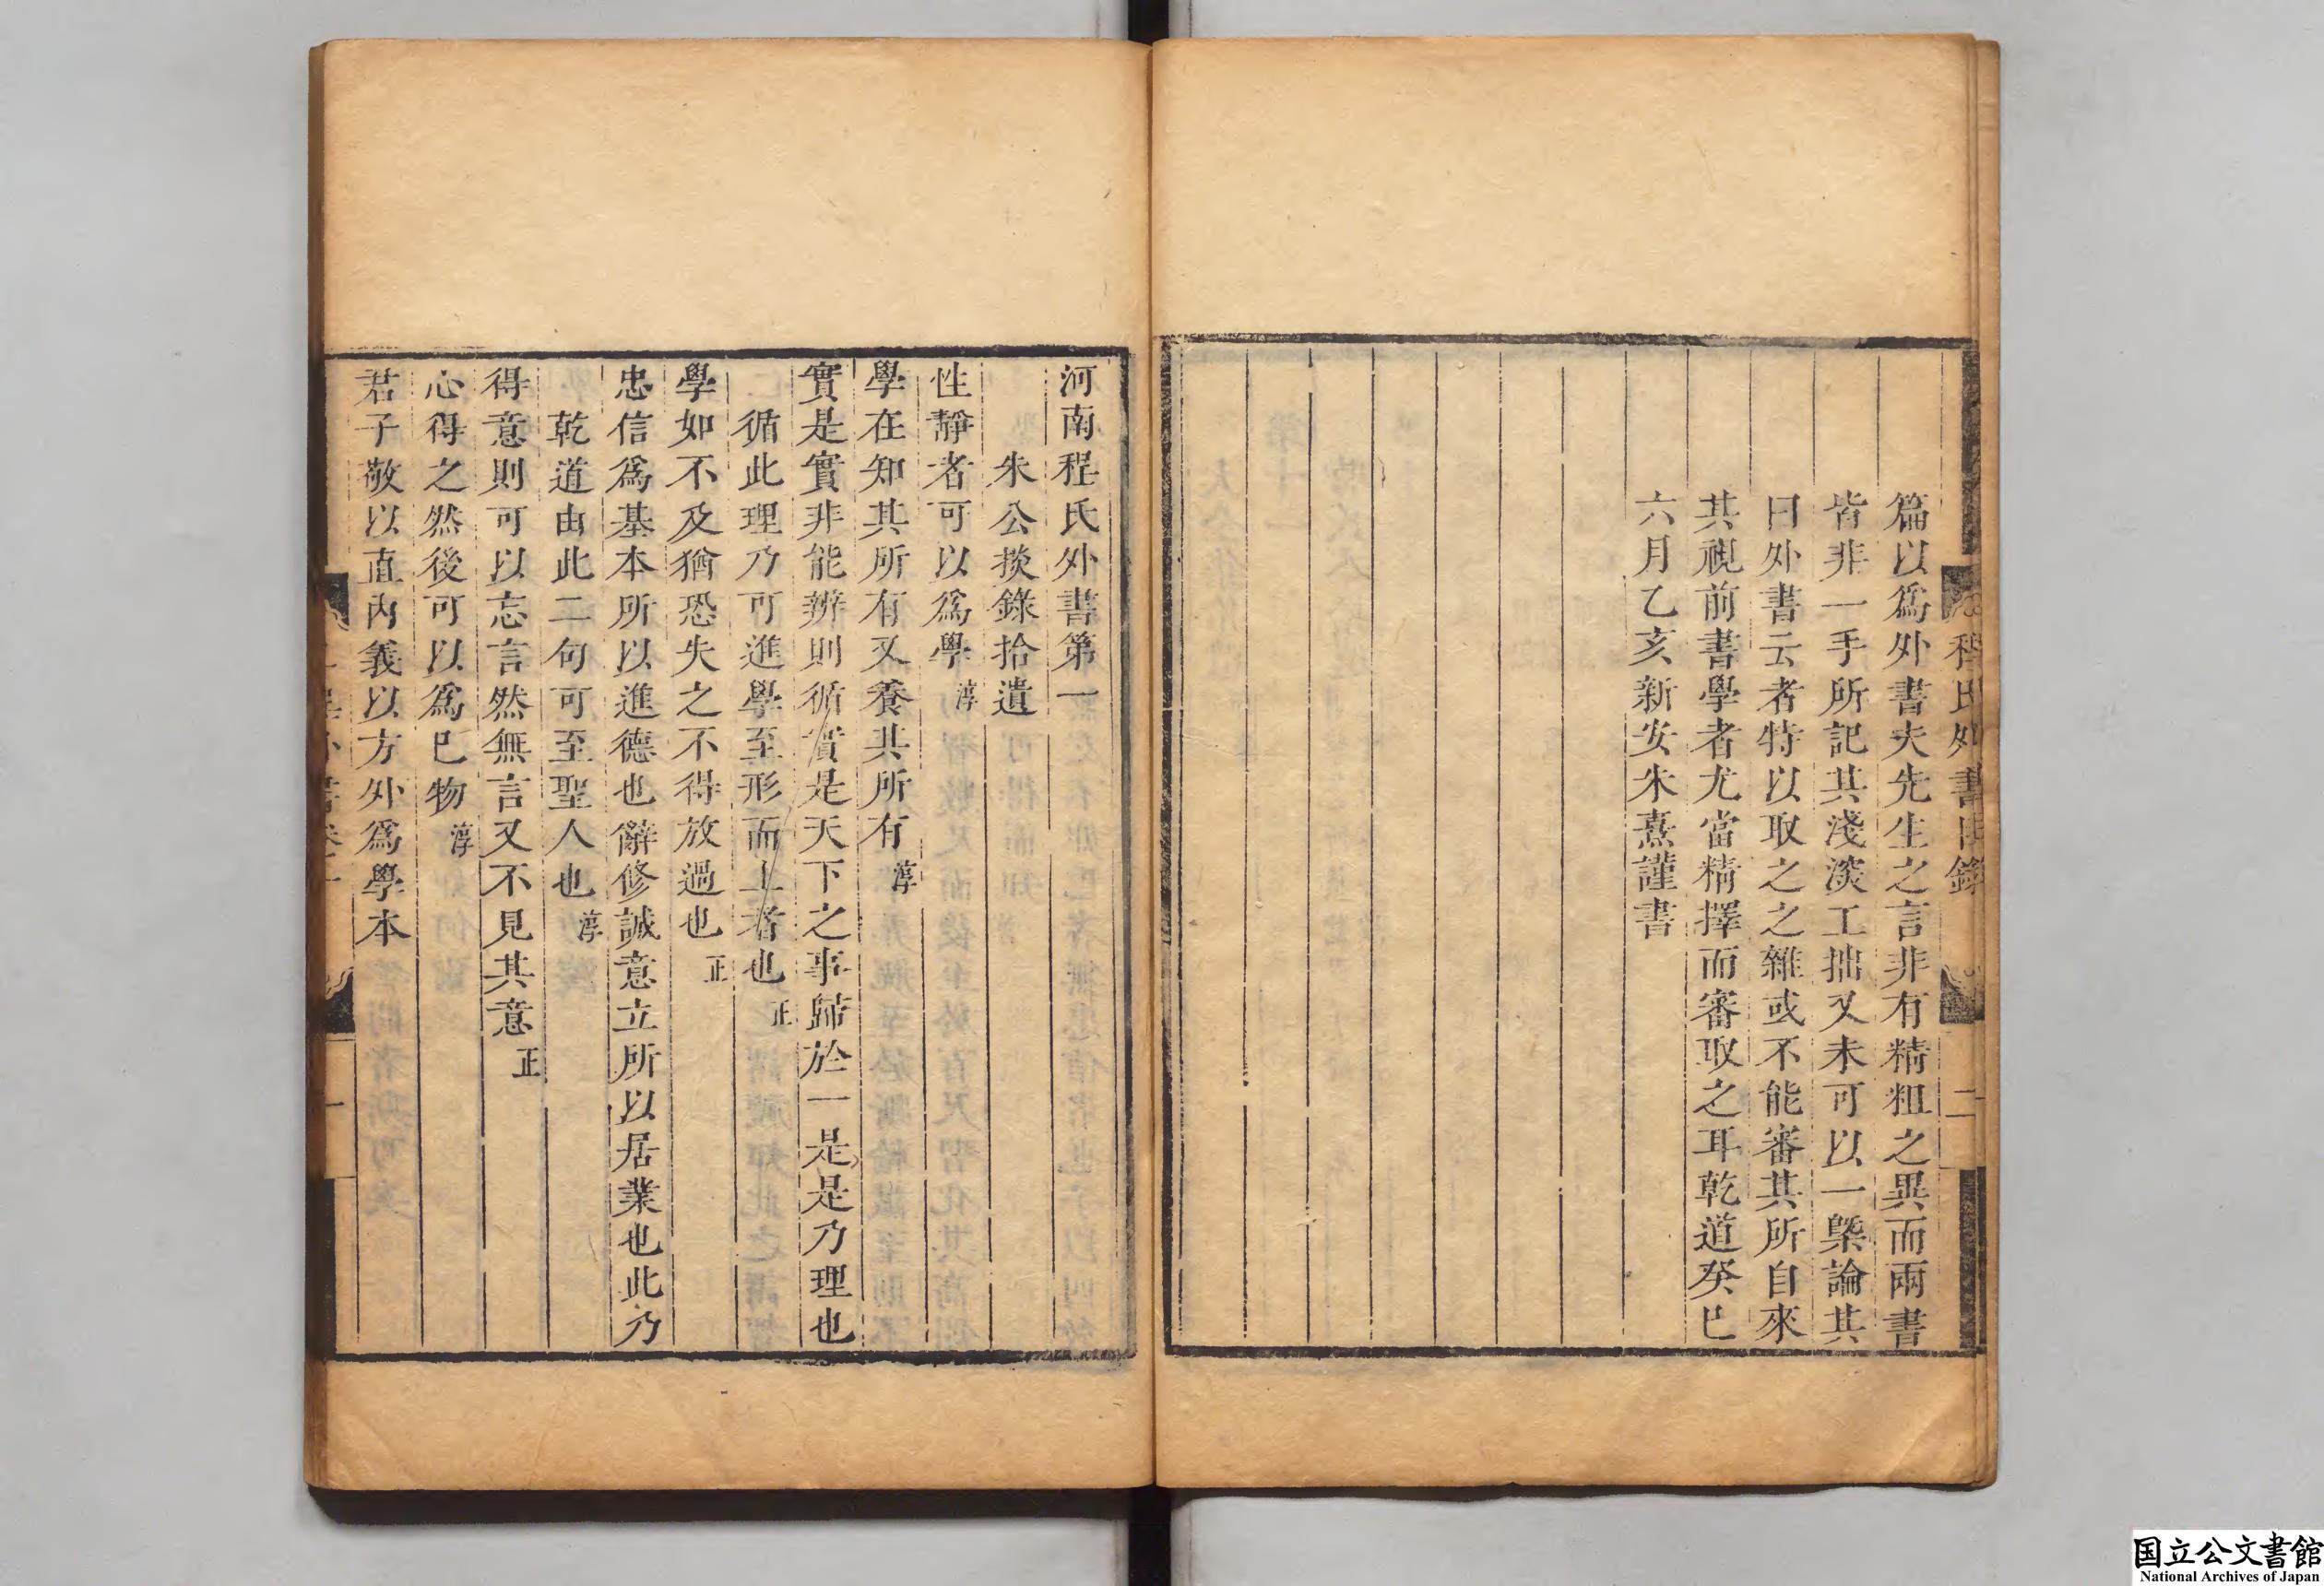 程氏外書目錄
二
篇以爲外書夫先生之言非有精粗之異而兩書
皆非一手所記其淺深工拙又未可以一槩論其
曰外書云者特以取之之雜或不能審其所自來
其視前書學者尤當精擇而審取之耳乾道癸巳
六月乙亥新安朱熹謹書
河南程氏外書第一
朱公掞錄拾遺
性靜者可以爲學淳
學在知其所有又養其所有淳
實是實非能辨則循實是天下之事歸於一是是乃理也
循此理乃可進學至形而上者也正
學如不及猶恐失之不得放過也正
忠信爲基本所以進德也辭修誠意立所以居業也此乃
乾道由此二句可至聖人也淳
得意則可以忘言然無言又不見其意正
心得之然後可以爲已物淳
君子敬以直內義以方外爲學本
国立公文書館
National Archives of Japan